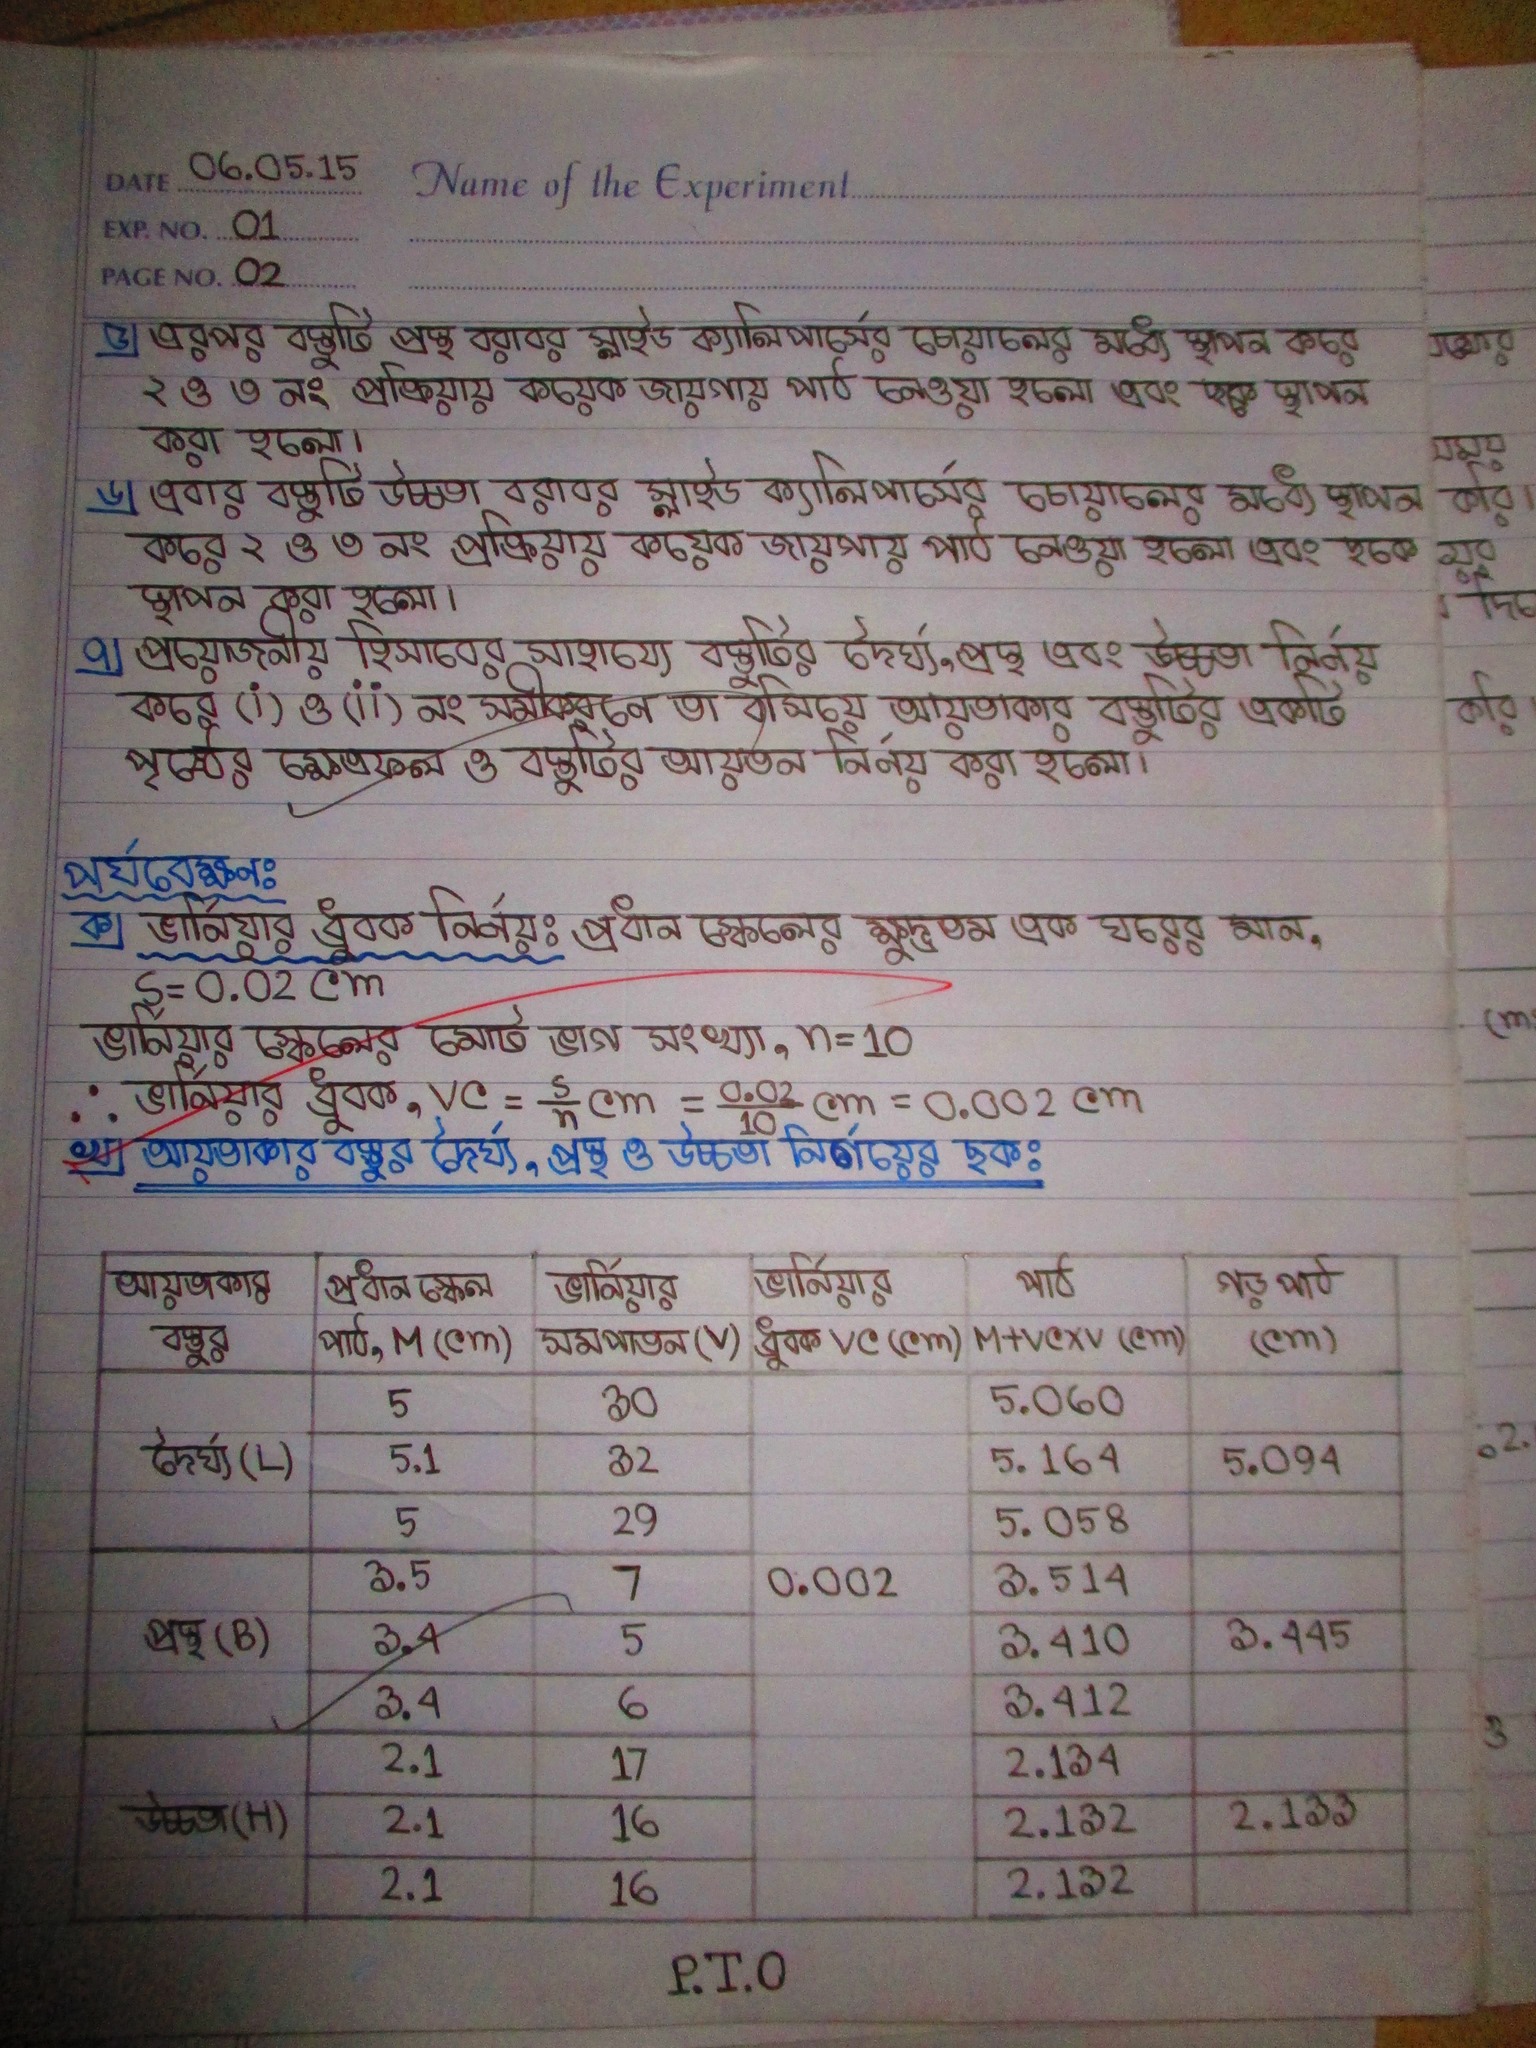 DATE 06.05.15 Name of the Experiment
EXP. NO. 01
PAGE NO. 02
৫| এরপর বস্তুটি প্রস্থ বরাবর স্লাইড ক্যালিপার্সের চোয়ালের মধ্যে স্থাপন করে
২ ও ৩ নং প্রক্রিয়ায় কয়েক জায়গায় পাঠ নেওয়া হলো এবং স্থাপন
করা হলো।
৬| এবার বস্তুটি উচ্চতা বরাবর স্লাইড ক্যালিপার্সের চোয়ালের মধ্যে স্থাপন
করে ২ ও ৩ নং প্রক্রিয়ায় কয়েক জায়গায় পাঠ নেওয়া হলো এবং ছকে
স্থাপন করা হলো।
৭| প্রয়োজনীয় হিসাবের সাহায্যে বস্তুটির দৈর্ঘ্য, প্রস্থ এবং উচ্চতা নির্নয়
করে (i) ও (ii) নং সমীকরনে তা বসিয়ে আয়তাকার বস্তুটির একটি
পৃষ্ঠের ক্ষেত্রফল ও বস্তুটির আয়তন নির্নয় করা হলো।
পর্যবেক্ষনঃ
ক| ভার্নিয়ার ধ্রুবক নির্নয়ঃ প্রধান স্কেলের ক্ষুদ্রতম এক ঘরের মান,
S = 0.02 cm
ভার্নিয়ার স্কেলের মোট ভাগ সংখ্যা, n = 10
∴ ভার্নিয়ার ধ্রুবক, VC = S/n cm = 0.02/10 cm = 0.002 cm
খ| আয়তাকার বস্তুর দৈর্ঘ্য, প্রস্থ ও উচ্চতা নির্ণয়ের ছকঃ
আয়তকার বস্তুর প্রধান স্কেল পাঠ, M (cm) ভার্নিয়ার সমপাতন (V) ভার্নিয়ার ধ্রুবক VC (cm) পাঠ M+VC×V (cm) গড় পাঠ (cm)
5 30 5.060
দৈর্ঘ্য (L) 5.1 32 5.164 5.094
5 29 5.058
3.5 7 0.002 3.514
প্রস্থ (B) 3.4 5 3.410 3.445
3.4 6 3.412
2.1 17 2.134
উচ্চতা (H) 2.1 16 2.132 2.133
2.1 16 2.132
P.T.O